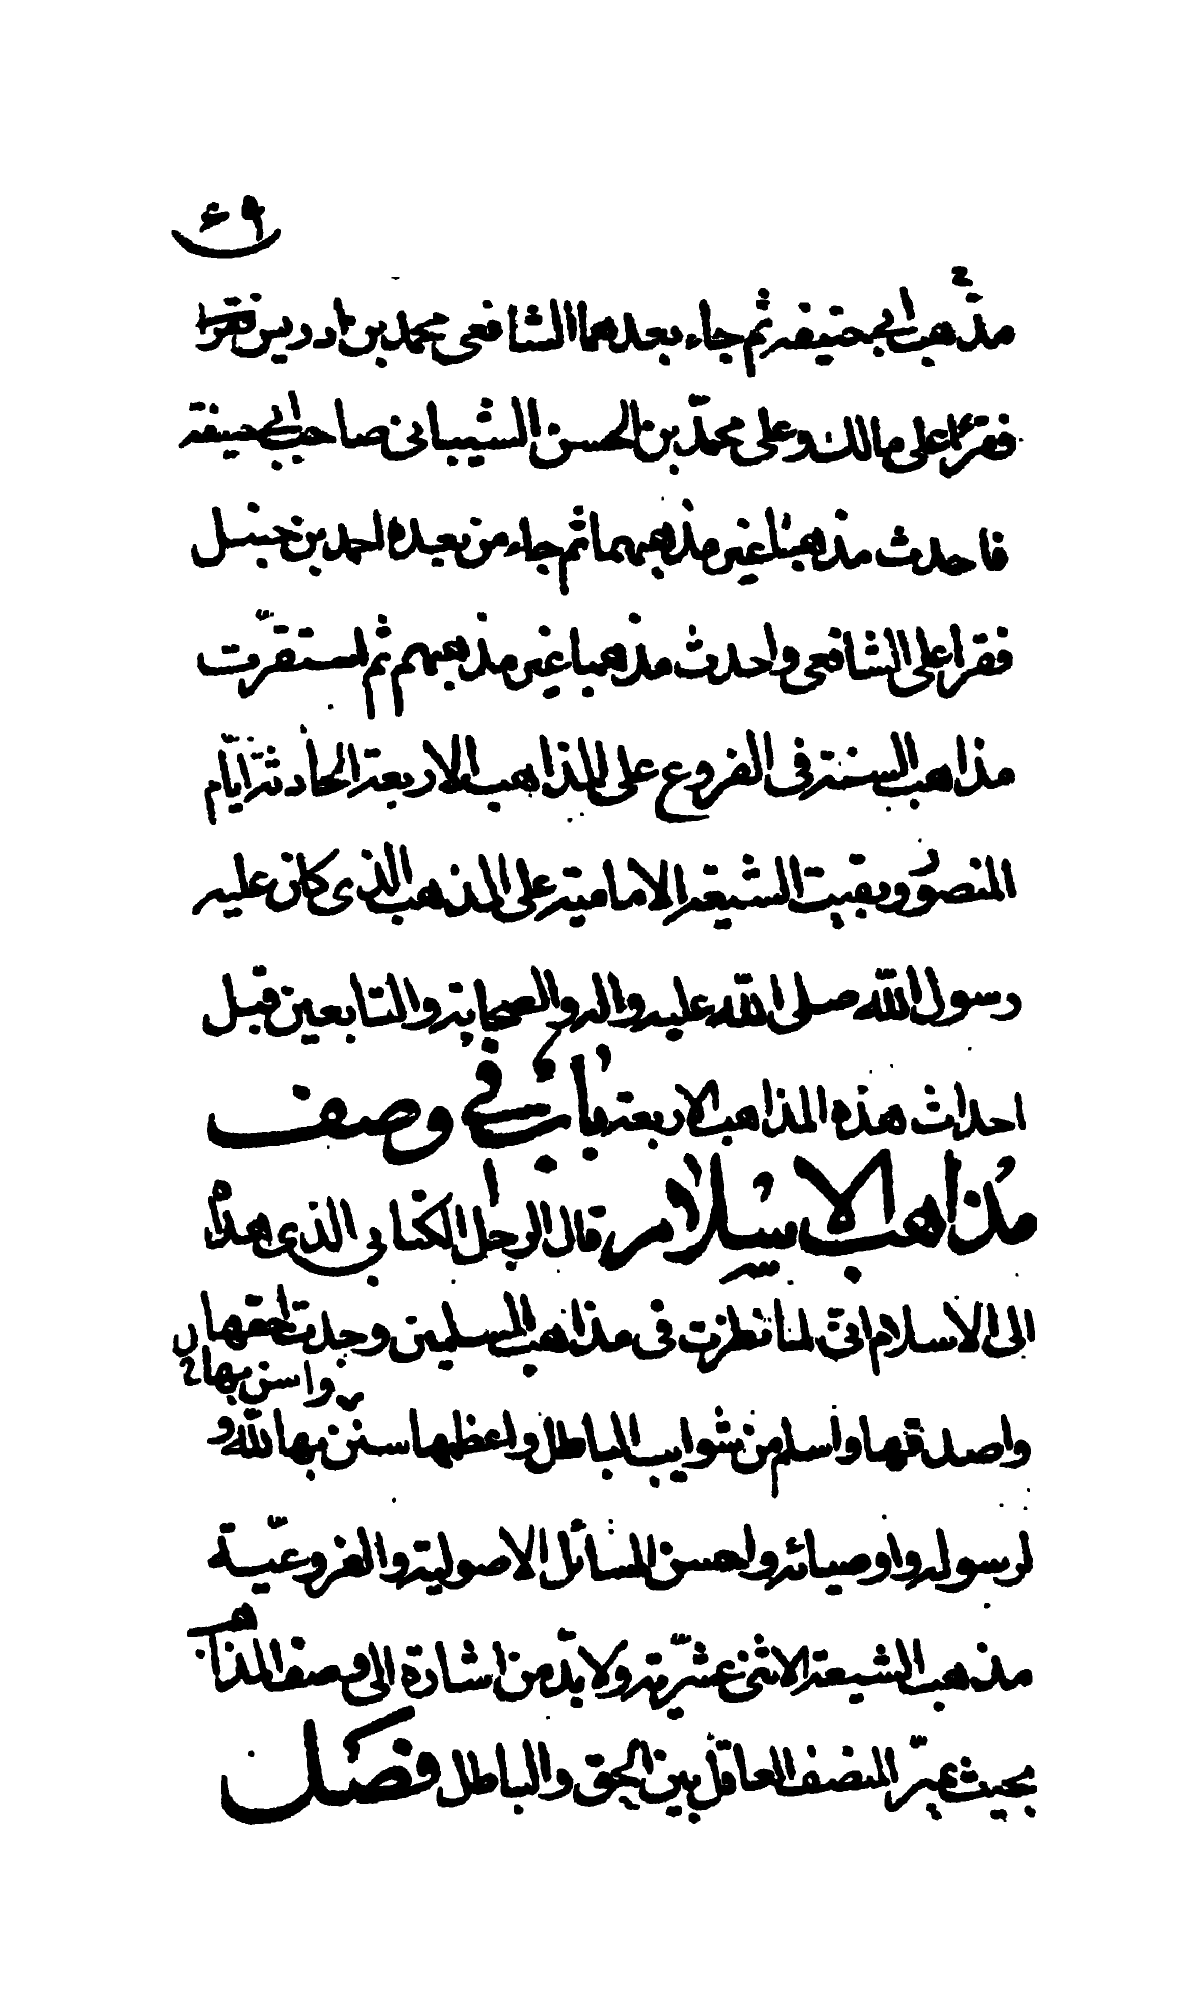 ٤٩
مذهب ابي حنيفه ثم جاء بعدهما الشافعي محمد بن ادريس
فقرا على مالك وعلى محمّد بن الحسن الشيباني صاحب ابي حنيفة
فاحدث مذهبا غير مذهبهما ثم جاء من بعده احمد بن حنبل
فقرا على الشافعي واحدث مذهبا غير مذهبهم ثم استقرّت
مذاهب السنة في الفروع على المذاهب الاربعة الحادثة ايّام
المنصور وبقيت الشيعة الامامية على المذهب الذي كان عليه
رسول الله صلى الله عليه واله والصحابة والتابعين قبل
احداث هذه المذاهب الاربعة باب في وصف
مذاهب الاسلام قال الرجل الكتابي الذي هداه
الى الاسلام انّي لمّا نظرت في مذاهب المسلمين وجدت احقها
واحسن بها
واصدقها واسلم من شوايب الباطل واعظمها سنن بها لله و
لرسوله واوصيائه واحسن المسائل الاصولية والفروعيّة
مذهب الشيعة الاثنى عشّرية ولا بدّ من اشارة الى وصف المذاهب
بحيث يميّز المنصف العاقل بين الحق والباطل فصل